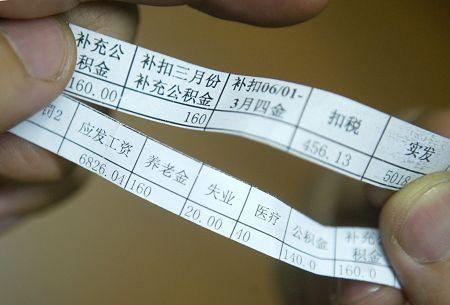 补充公
积金
补扣三月份
补充公积金
补扣06/01-
3月四金
扣税
实发
160.00
160
456.13
5018
2
应发工资
养老金
失业
医疗
公积金
补充公
积金
6826.04
160
20.00
40
140.0
160.0